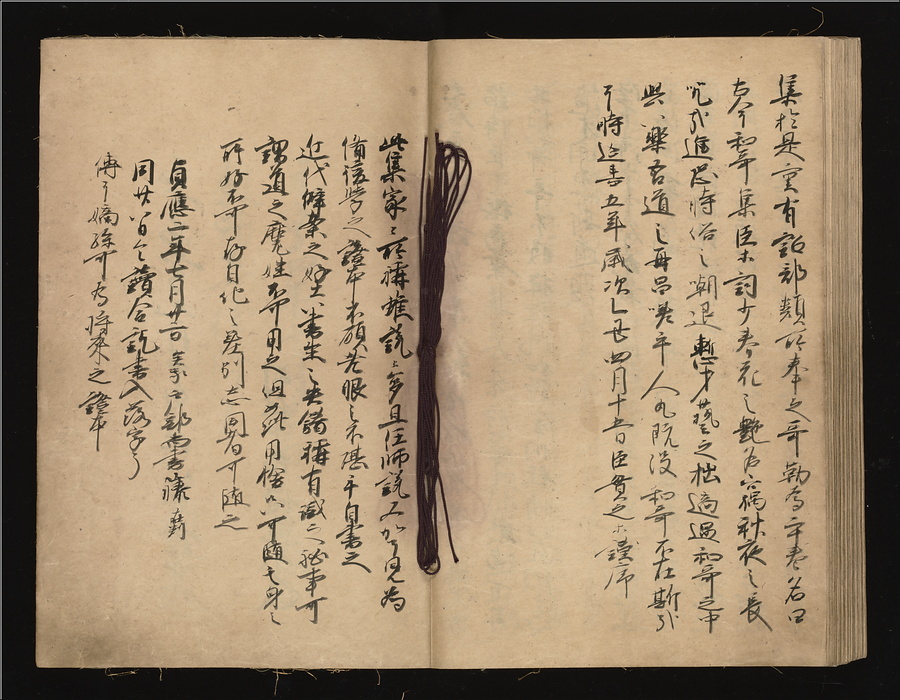 集於是重有詔部類所奉之哥勒為廿巻名曰
古今和哥集臣等詞少春花之艶名竊秋夜之長
况哉進恐時俗之嘲退慙才藝之拙適遇和哥之中
興以樂吾道之再昌嗟乎人丸既没和哥不在斯哉
于時延喜五年歳次乙丑四月十五日臣貫之等謹序
此集家々所稱雖説々多且任師説又加了見為
備後學之證本不顧老眼之不堪手自書之
近代僻案之好士以書生之失錯稱有識之秘事可
謂道之魔姓不可用之但如此用捨只可随其身之
所好不可存自他之差別志同者可随之
貞應二年七月廿二日 戸部尚書藤判
同廿八日令讀合訖書入落字了
傳于嫡孫可為将来之證本